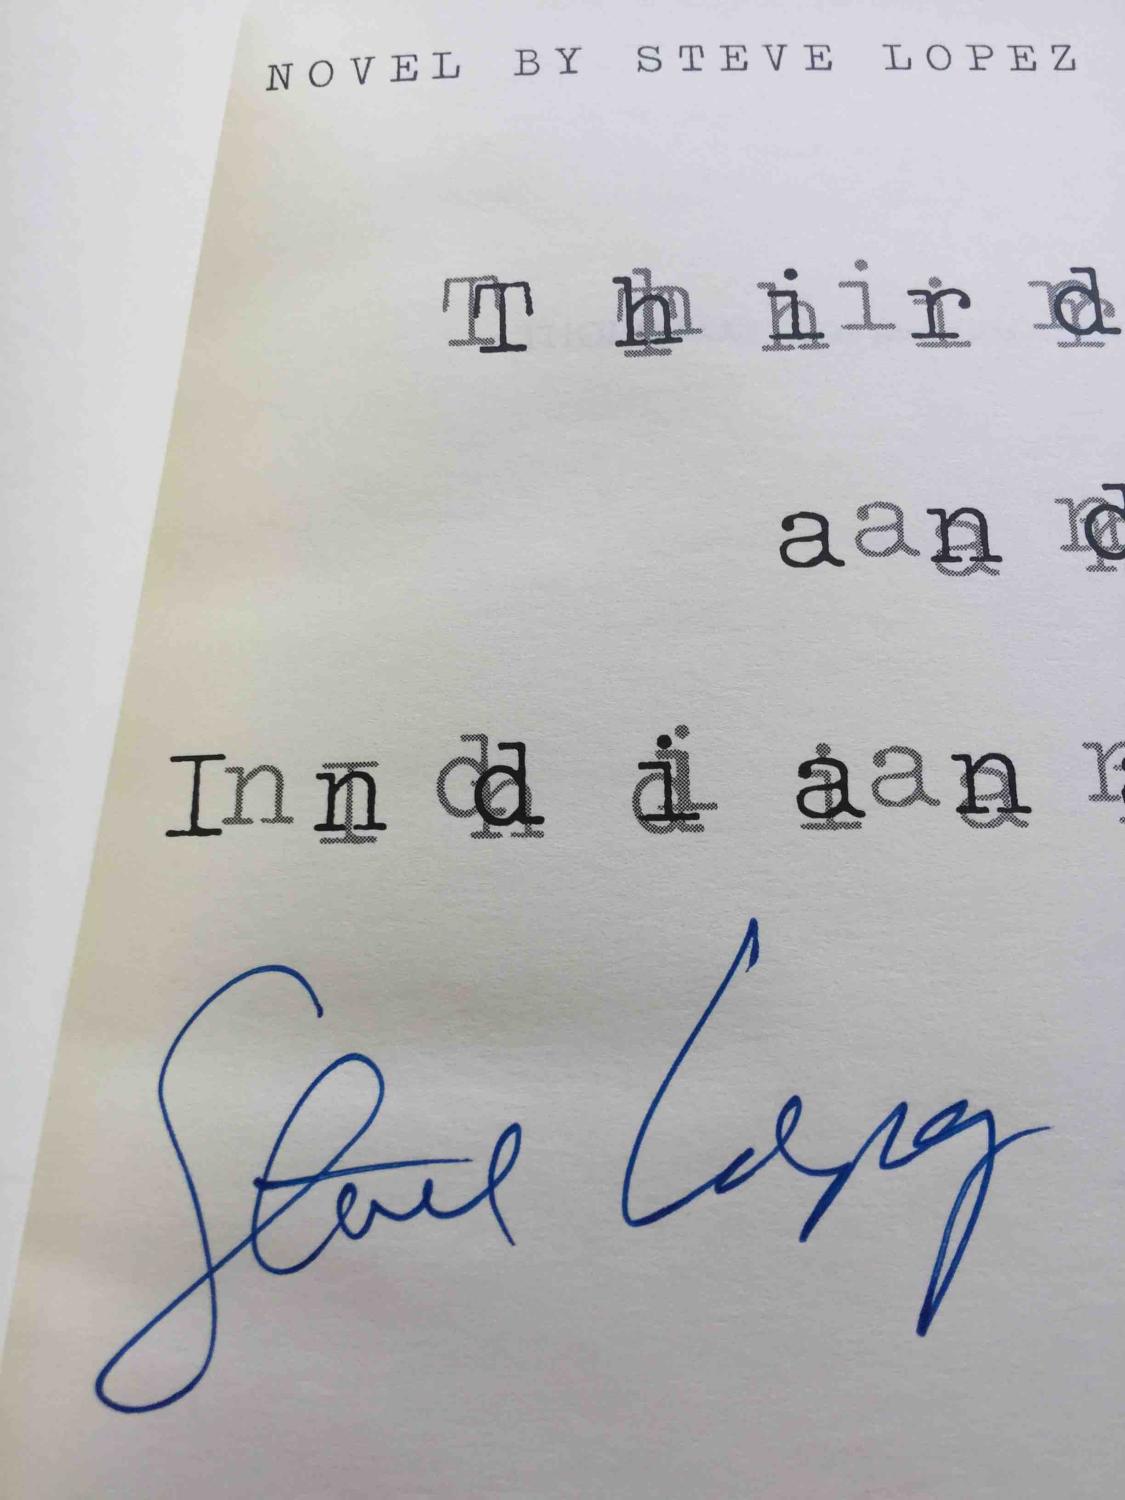 NOVEL BY STEVE LOPEZ
Third
and
Indiana
Steve Lopez